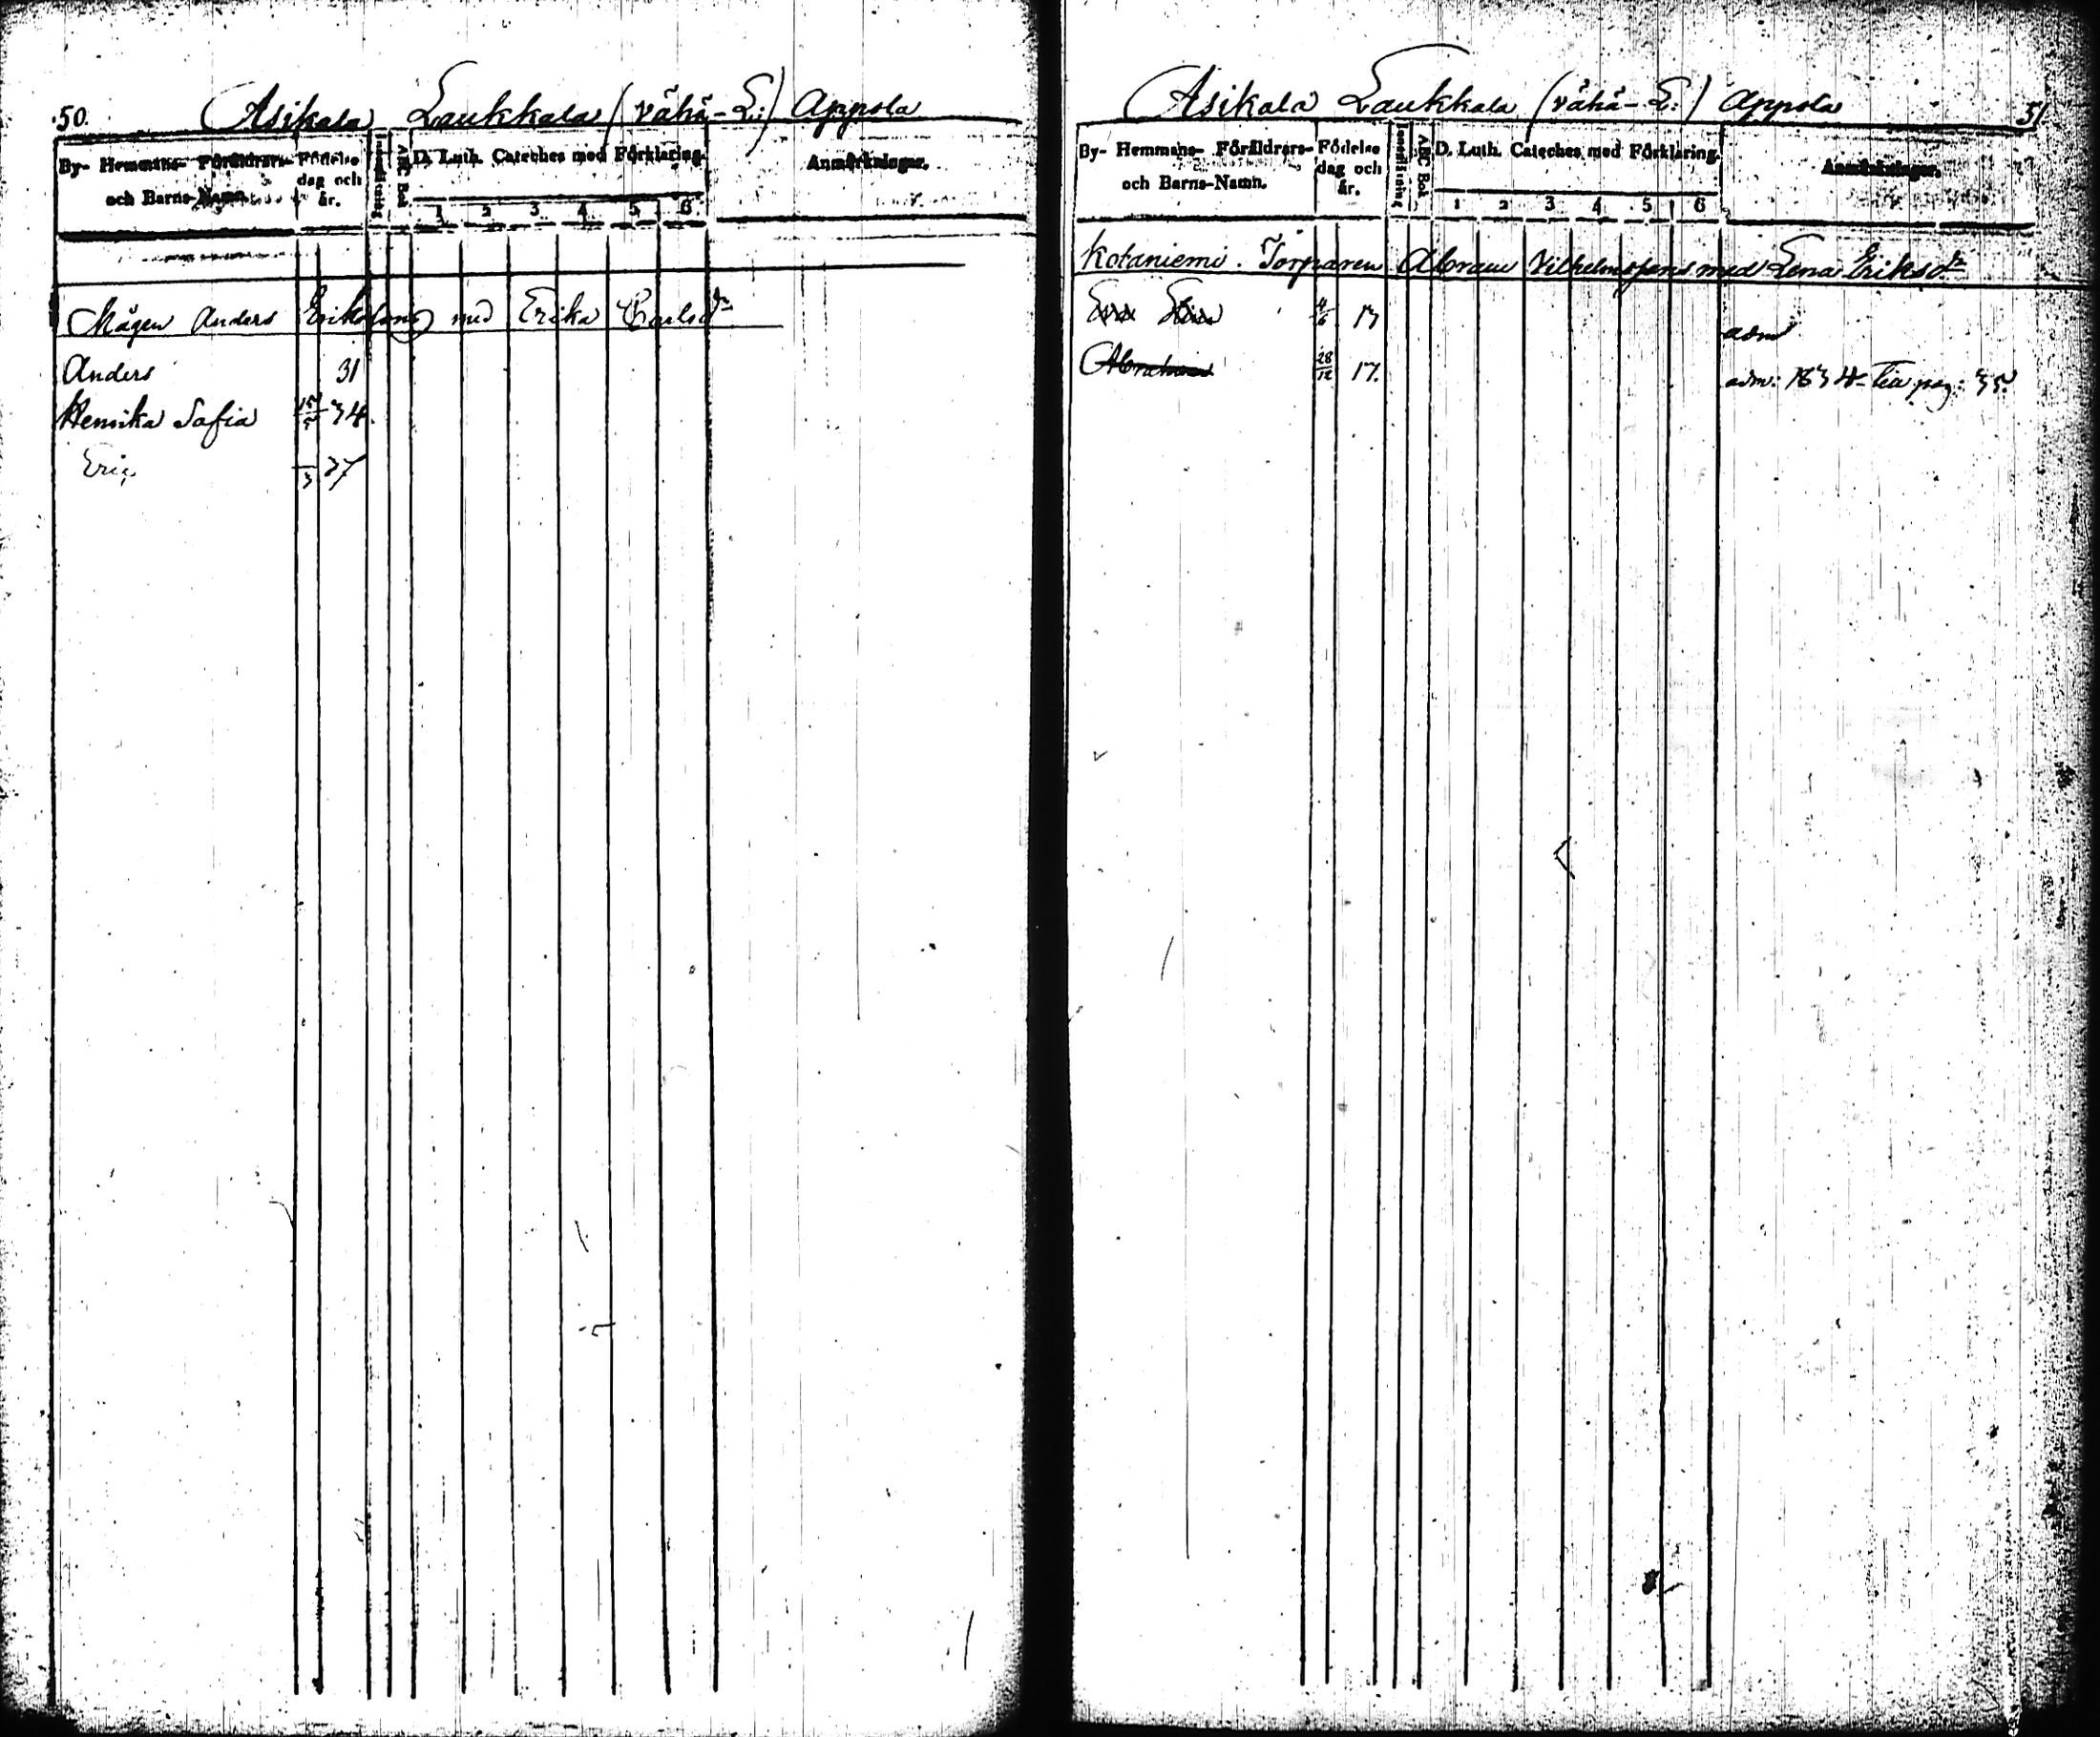 50. Asikala Laukkala (Vähä-L:) Appola
By- Hemmans- Föräldrars- och Barns-Namn. Födelse dag och år. ABC Bok D. Luth. Cateches med Förklaring. 1 2 3 4 5 6 Anmärkningar.
Mågen Anders Eriksson med Erika Carlsdr
Anders 31
Henrika Sofia 15/5 34.
Eric /3 37
Asikala Laukkala (Vähä-L:) Appola 51.
By- Hemmans- Föräldrars- och Barns-Namn. Födelse dag och år. ABC Bok D. Luth. Cateches med Förklaring. 1 2 3 4 5 6 Anmärkningar.
Kotaniemi. Torparen Abram Vilhelmssons med Lena Eriksdr
17 adm
Abraham 28/12 17. adm: 1834 pag: 35